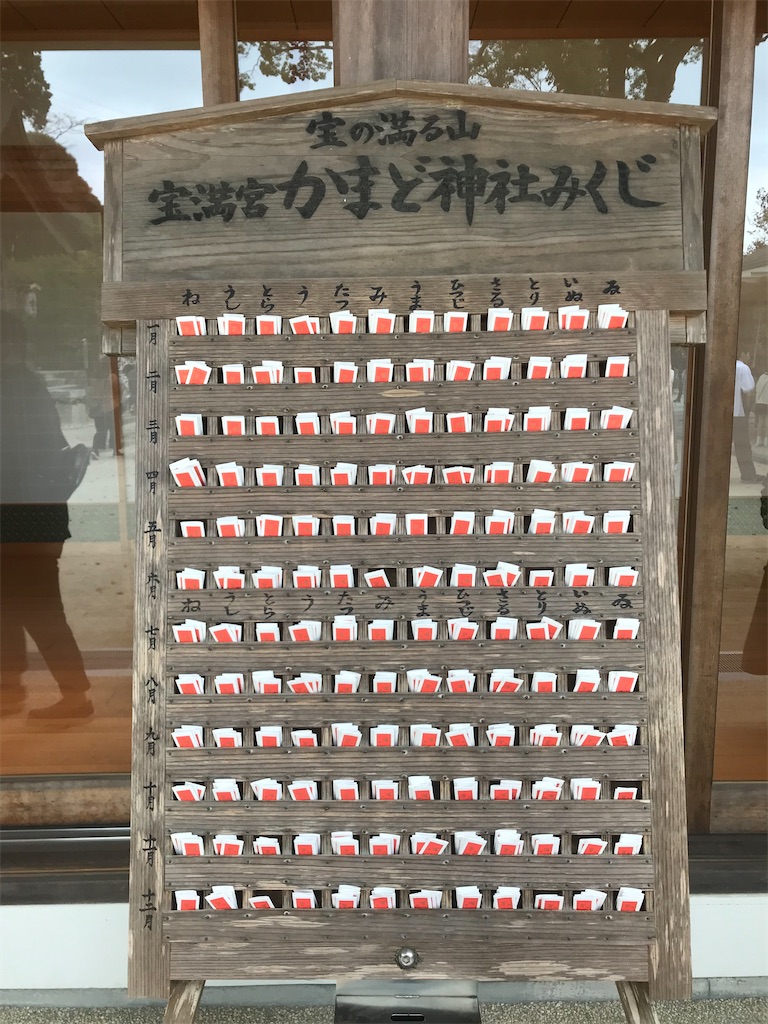 宝の満る山
宝満宮かまど神社みくじ
ね うし とら う たつ み うま ひつじ さる とり いぬ ゐ
一月
二月
三月
四月
五月
六月
ね うし とら う たつ み うま ひつじ さる とり いぬ ゐ
七月
八月
九月
十月
十一月
十二月